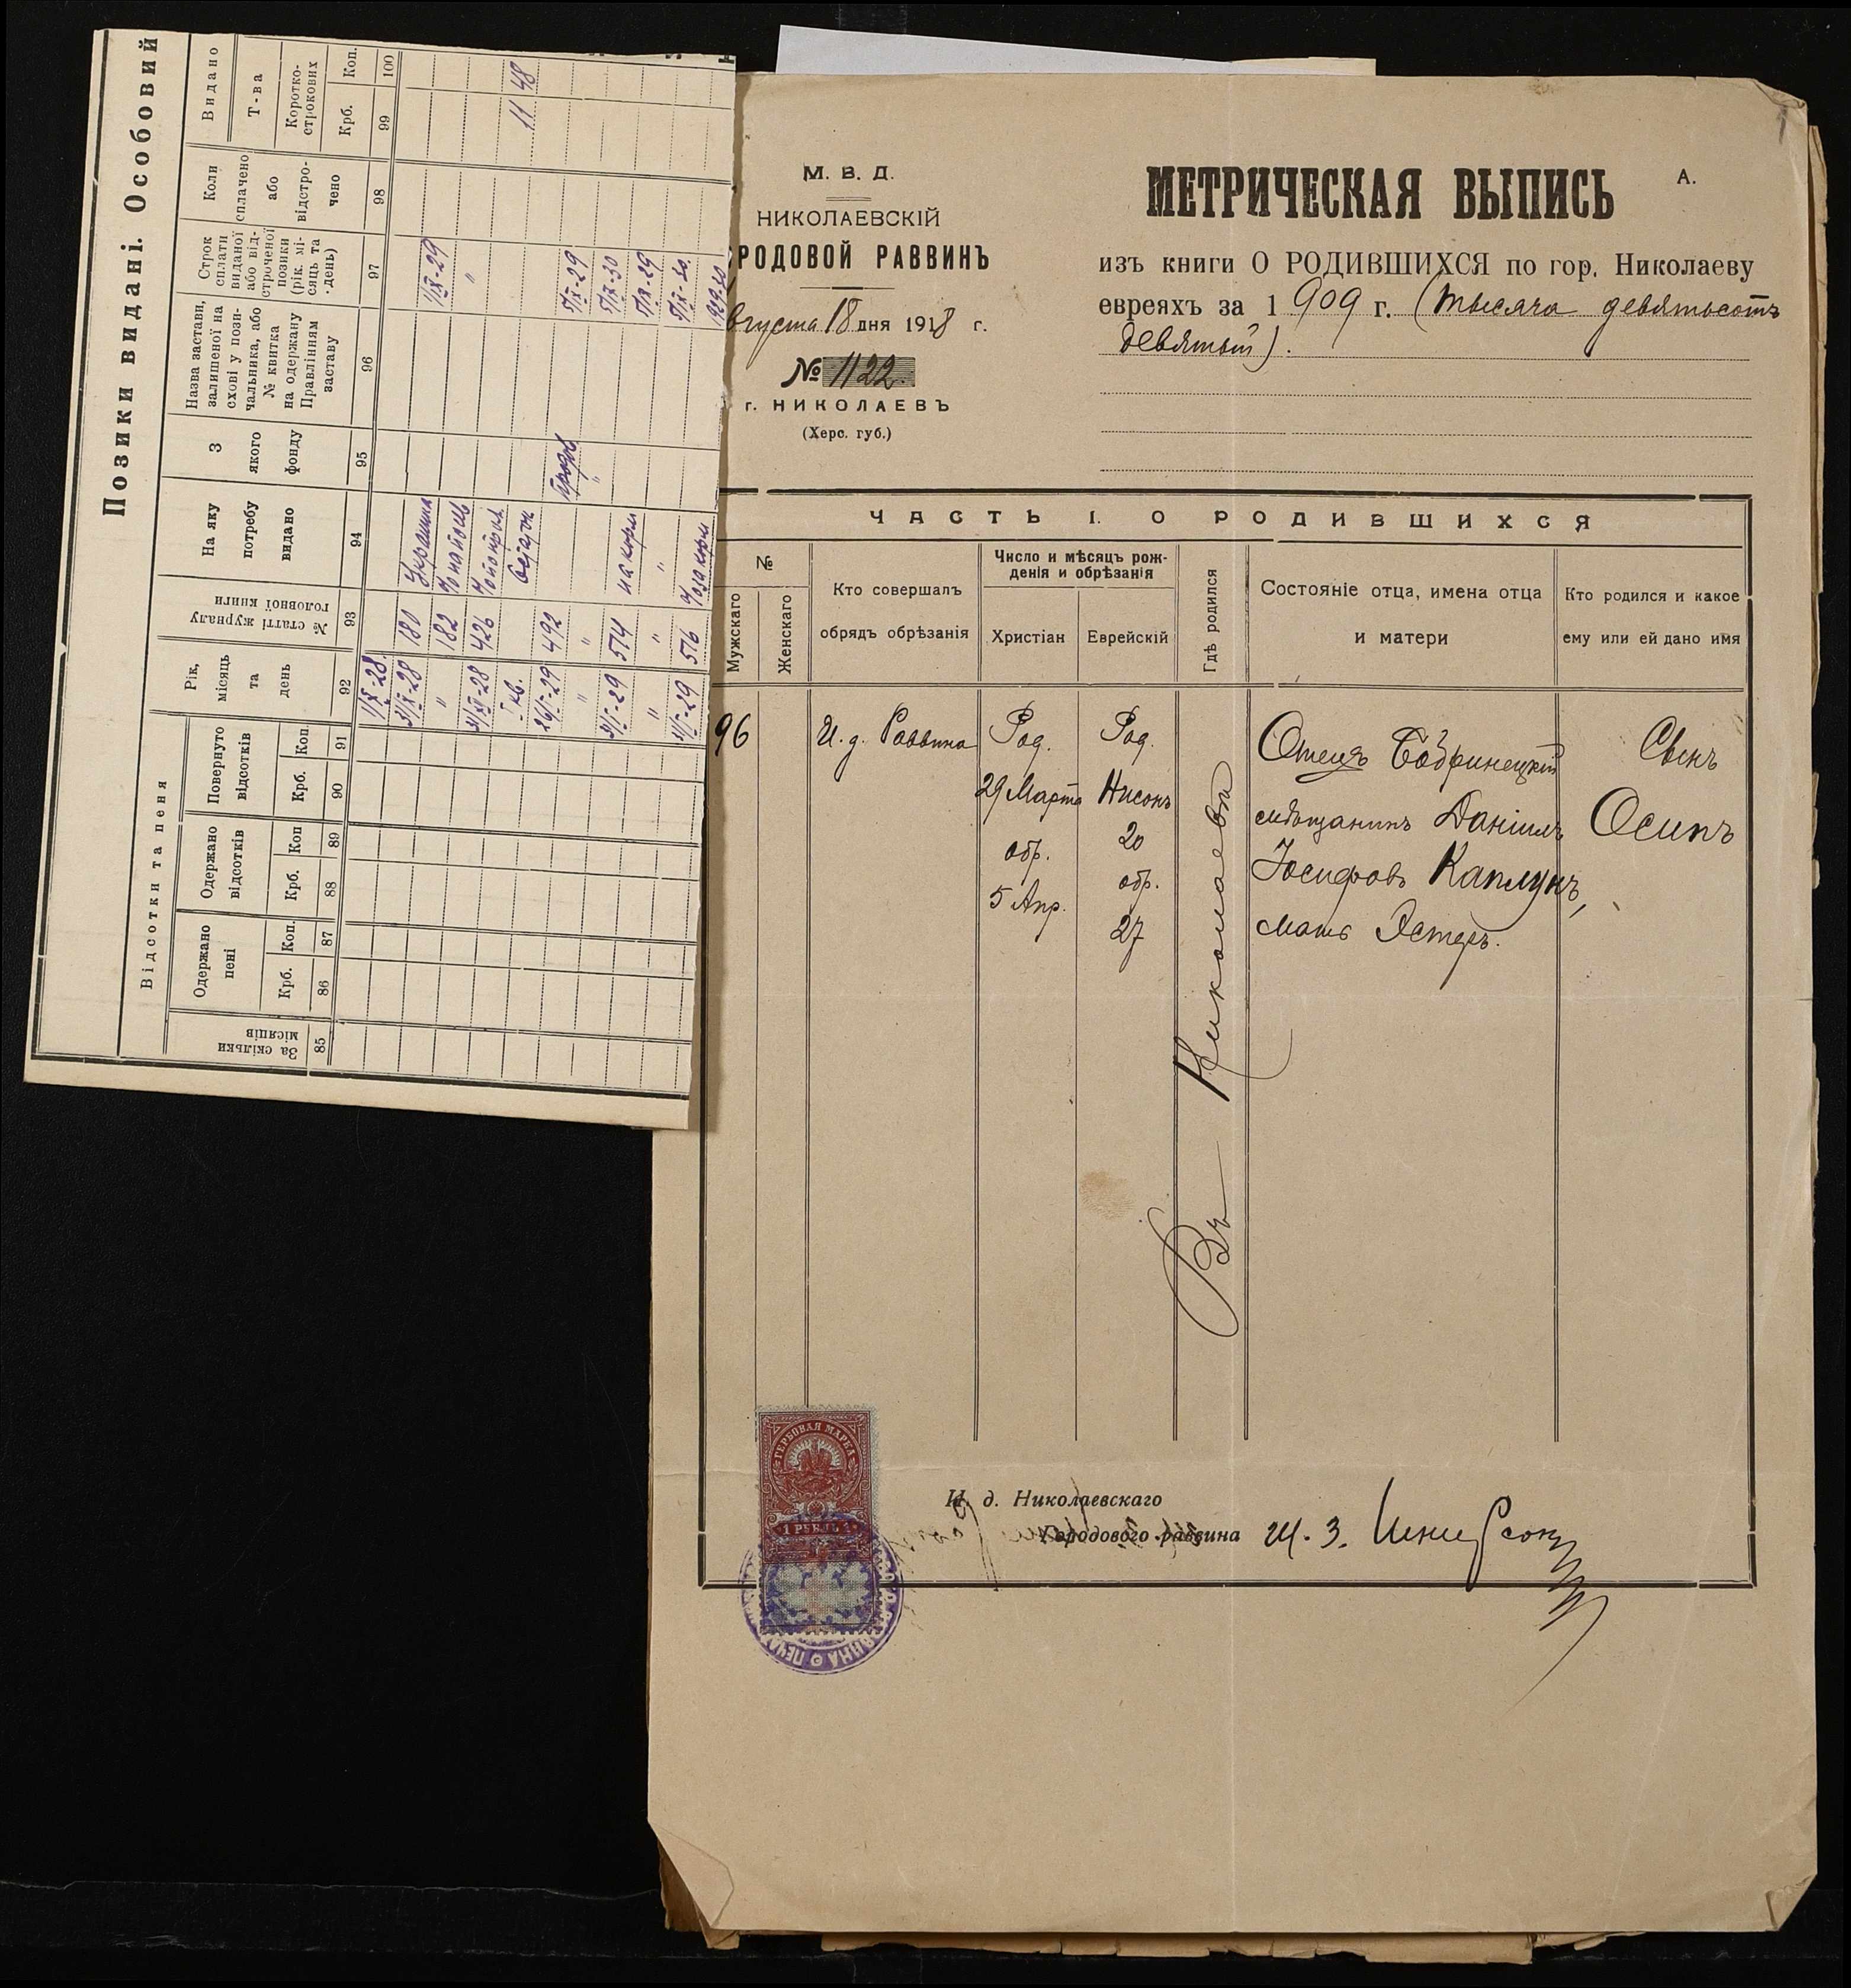 Позики видані. Особовий
Відсотки та пеня
За скільки місяців
Одержано пені
Одержано відсотків
Повернуто відсотків
Рік, місяць та день
№ статті журналу головної книги
На яку потребу видано
З якого фонду
Назва застави, залишеної на схові у позичальника, або № квитка на одержану Правлінням заставу
Строк сплати виданої або відстроченої позики (рік, місяць та день)
Коли сплачено або відстрочено
Видано
Т-ва
Короткострокових
Крб. Коп. Крб. Коп Крб. Коп. Крб. Коп.
85 86 87 88 89 90 91 92 93 94 95 96 97 98 99 100
1/IX-28.
31/X-28 180 1/IX-29
" 182 "
31/XII-28 426
11 48
26/I-29 492 5/IX-29
" " 5/IX-30
31/I-29 514 на корм 5/IX-29
" " " 5/IX-30.
31/I-29 516 1929-30
М. В. Д.
НИКОЛАЕВСКІЙ
РОДОВОЙ РАВВИНЪ
вгуста 18 дня 1918 г.
№ 1122.
г. НИКОЛАЕВЪ
(Херс. губ.)
МЕТРИЧЕСКАЯ ВЫПИСЬ
А.
изъ книги О РОДИВШИХСЯ по гор. Николаеву
евреяхъ за 1909 г. (тысяча девятьсотъ
девятый).
ЧАСТЬ I. О РОДИВШИХСЯ
№
Мужскаго
Женскаго
Кто совершалъ
обрядъ обрѣзанія
Число и мѣсяцъ рож-
денія и обрѣзанія
Христіан
Еврейскій
Гдѣ родился
Состояніе отца, имена отца
и матери
Кто родился и какое
ему или ей дано имя
96
И. д. Раввина
Род.
29 Марта
обр.
5 Апр.
Род.
Нисонъ
20
обр.
27
Въ Николаевѣ
Отецъ Бобринецкій
мѣщанинъ Даніилъ
Іосифовъ Каплунъ,
мать Эстеръ.
Сынъ
Осипъ
ГЕРБОВАЯ МАРКА
1 РУБЛЬ
И. д. Николаевскаго
Городового раввина